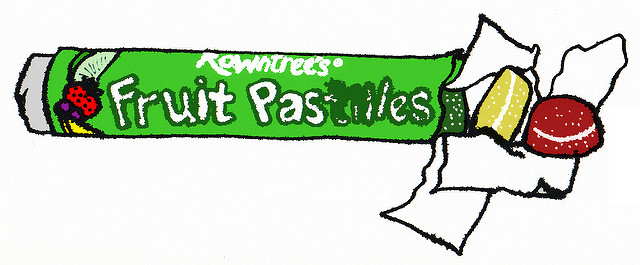 Rowntree's®
Fruit Pastilles